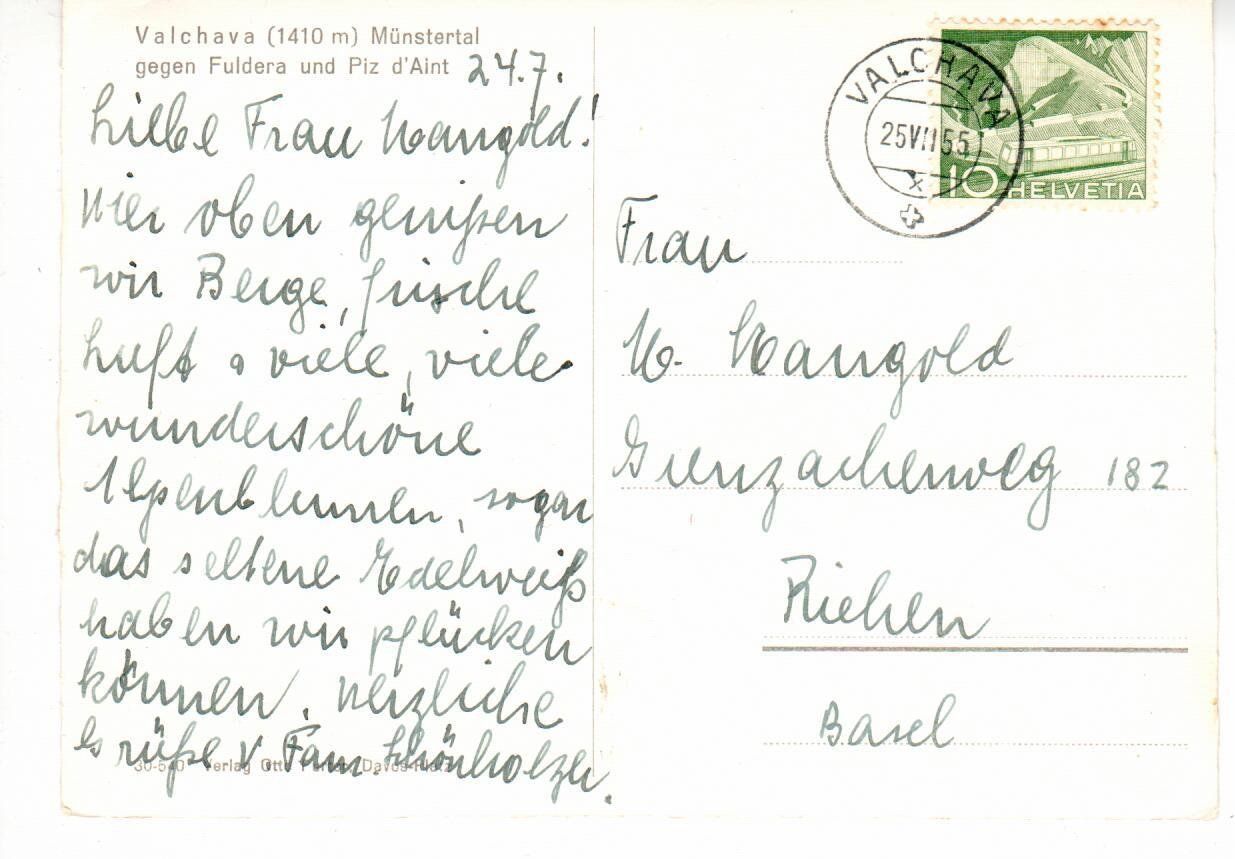 Valchava (1410 m) Münstertal
gegen Fuldera und Piz d'Aint
24.7.
Liebe Frau Mangold!
Hier oben genießen
wir Berge, frische
Luft & viele, viele
wunderschöne
Alpenblumen, sogar
das seltene Edelweiß
haben wir pflücken
können. Herzliche
Grüße v. Fam. Schönholzer.
30-540 Verlag Otto Davos-Platz
VALCHAVA
25 VII 55
10 HELVETIA
Frau
M. Mangold
Grenzacherweg 182
Riehen
Basel